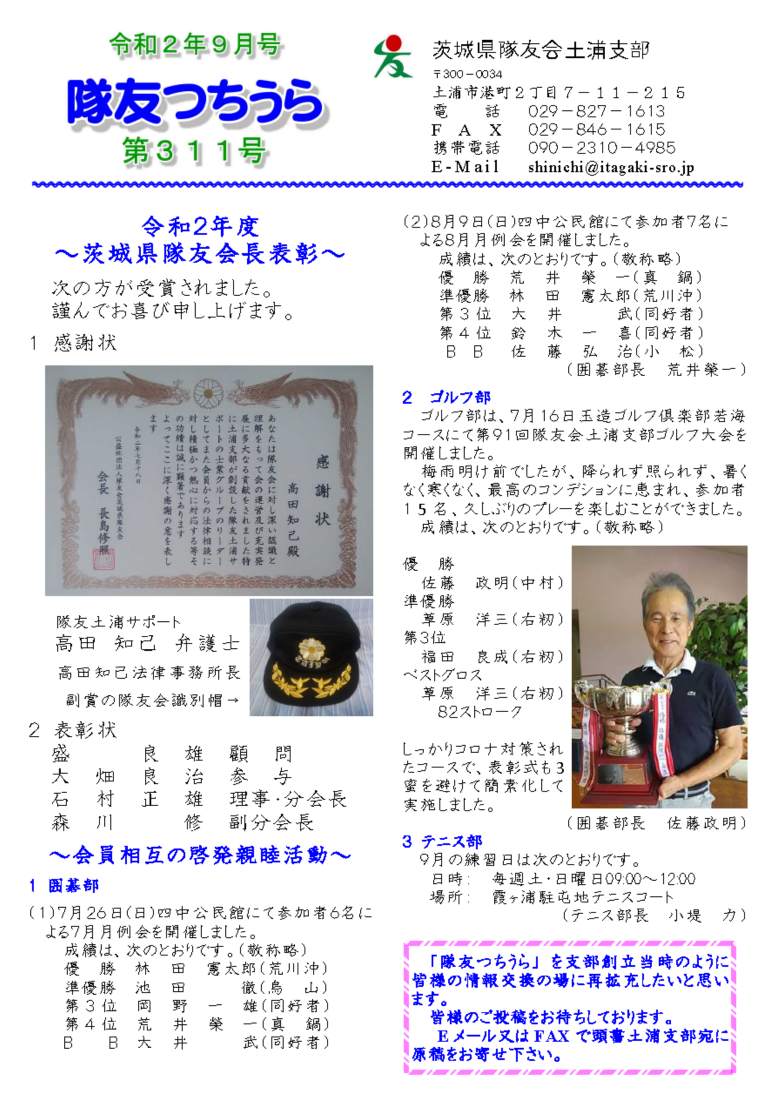 令和２年９月号
隊友つちうら
第３１１号
茨城県隊友会土浦支部
〒300－0034
土浦市港町２丁目７－１１－２１５
電　　話　029－827－1613
Ｆ Ａ Ｘ　029－846－1615
携帯電話　090－2310－4985
E-Mail　shinichi@itagaki-sro.jp
令和２年度
～茨城県隊友会長表彰～
次の方が受賞されました。
謹んでお喜び申し上げます。
１ 感謝状
感謝状
高田知己殿
あなたは隊友会に対し深い認識と
理解をもって会の運営及び充実発
展に多大なる貢献をされました特
に土浦支部が創設した隊友土浦サ
ポートの士業グループのリーダー
としてまた会員からの法律相談に
対し積極かつ熱心に対応する等そ
の功績は誠に顕著であります
よってここに深く感謝の意を表し
ます
令和二年七月十八日
公益社団法人隊友会茨城県隊友会
会長 長島修照
隊友土浦サポート
高田 知己 弁護士
高田知己法律事務所長
副賞の隊友会識別帽→
２ 表彰状
盛　　良 雄 顧　問
大 畑 良 治 参　与
石 村 正 雄 理事・分会長
森 川　　修 副分会長
～会員相互の啓発親睦活動～
１ 囲碁部
(1)7月26日(日)四中公民館にて参加者6名に
よる7月月例会を開催しました。
成績は、次のとおりです。(敬称略)
優　勝 林　田　憲太郎(荒川沖)
準優勝 池　田　　　徹(烏　山)
第３位 岡　野　一　雄(同好者)
第４位 荒　井　榮　一(真　鍋)
Ｂ　Ｂ 大　井　　　武(同好者)
(2)8月9日(日)四中公民館にて参加者7名に
よる8月月例会を開催しました。
成績は、次のとおりです。(敬称略)
優　勝 荒　井　榮　一(真　鍋)
準優勝 林　田　憲太郎(荒川沖)
第３位 大　井　　　武(同好者)
第４位 鈴　木　一　喜(同好者)
ＢＢ 佐　藤　弘　治(小　松)
(囲碁部長　荒井榮一)
２ ゴルフ部
ゴルフ部は、7月16日玉造ゴルフ倶楽部若海
コースにて第91回隊友会土浦支部ゴルフ大会を
開催しました。
梅雨明け前でしたが、降られず照られず、暑く
なく寒くなく、最高のコンデションに恵まれ、参加者
15名、久しぶりのプレーを楽しむことができました。
成績は、次のとおりです。(敬称略)
優　勝
佐藤　政明(中村)
準優勝
草原　洋三(右籾)
第3位
福田　良成(右籾)
ベストグロス
草原　洋三(右籾)
82ストローク
しっかりコロナ対策され
たコースで、表彰式も3
蜜を避けて簡素化して
実施しました。
(囲碁部長　佐藤政明)
３ テニス部
9月の練習日は次のとおりです。
日時：　毎週土・日曜日09:00～12:00
場所：　霞ヶ浦駐屯地テニスコート
(テニス部長　小堤　力)
「隊友つちうら」を支部創立当時のように
皆様の情報交換の場に再拡充したいと思い
ます。
皆様のご投稿をお待ちしております。
Ｅメール又は FAX で頭書土浦支部宛に
原稿をお寄せ下さい。